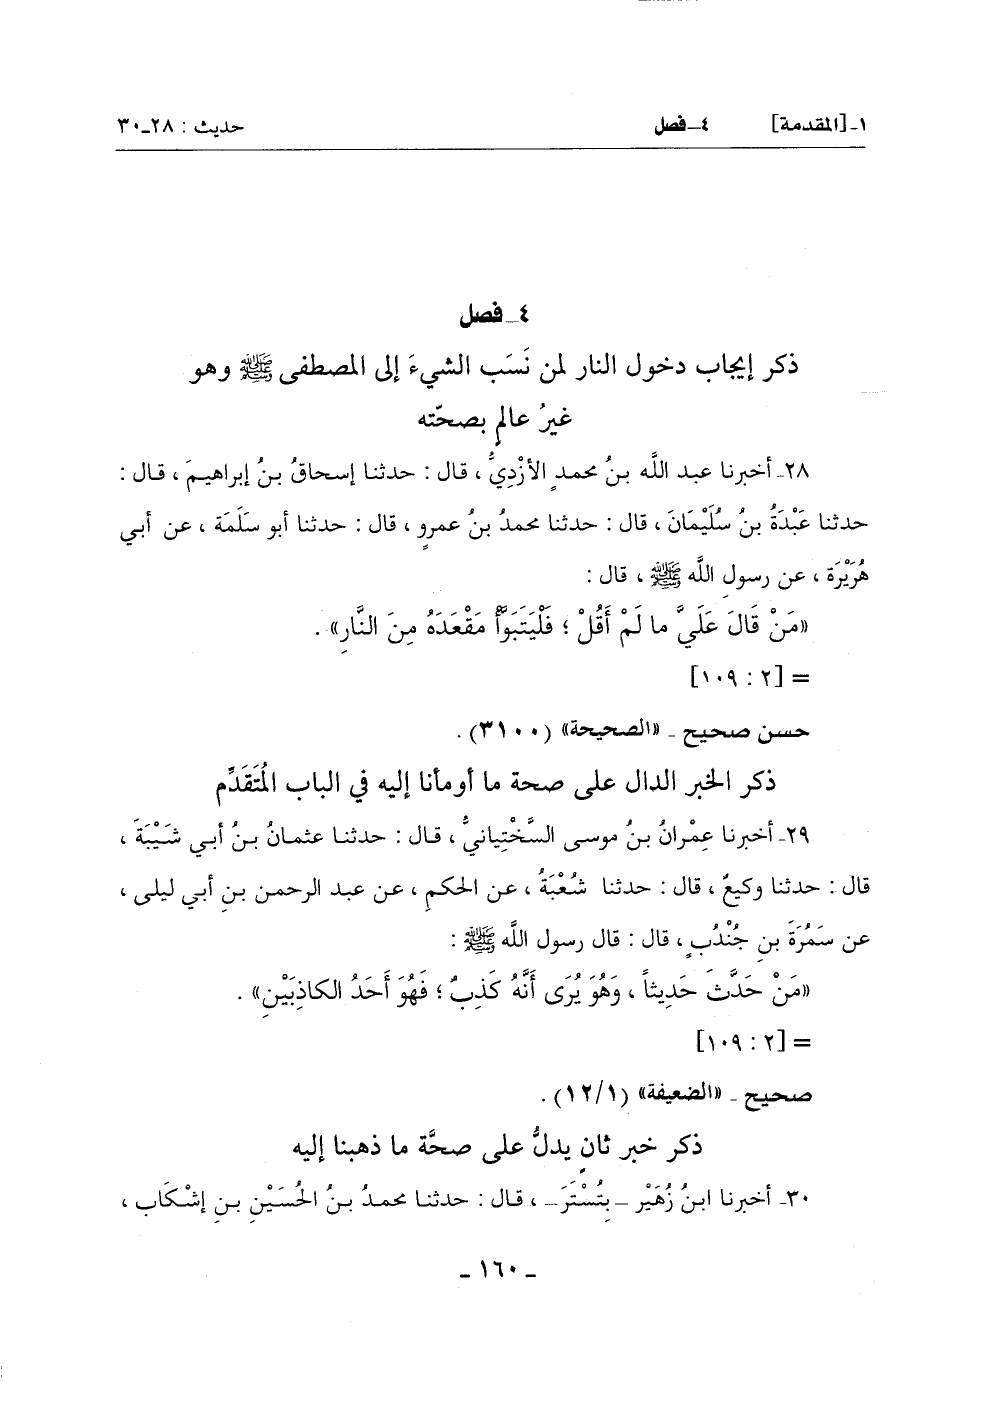 ١ـ [المقدمة] ٤ـ فصل حديث : ٢٨ـ٣٠
٤ـ فصل
ذكر إيجاب دخول النار لمن نَسَب الشيءَ إلى المصطفى ﷺ وهو
غيرُ عالمٍ بصحّته
٢٨ـ أخبرنا عبد اللَّه بنُ محمدٍ الأزْدِيُّ ، قال : حدثنا إسحاقُ بنُ إبراهيمَ ، قال :
حدثنا عَبْدَةُ بنُ سُلَيْمَانَ ، قال : حدثنا محمدُ بنُ عمرٍو ، قال : حدثنا أبو سَلَمَة ، عن أبي
هُرَيْرَة ، عن رسولِ اللَّه ﷺ ، قال :
«مَنْ قَالَ عَلَيَّ ما لَمْ أَقُلْ ؛ فَلْيَتَبَوَّأْ مَقْعَدَهُ مِنَ النَّارِ» .
= [٢ : ١٠٩]
حسن صحيح ـ «الصحيحة» (٣١٠٠) .
ذكر الخبر الدال على صحة ما أومأنا إليه في الباب المُتَقَدِّم
٢٩ـ أخبرنا عِمْرانُ بنُ موسى السَّخْتِيانيُّ ، قال : حدثنا عثمانُ بنُ أبي شَيْبَةَ ،
قال : حدثنا وكيعٌ ، قال : حدثنا شُعْبَةُ ، عن الحكمِ ، عن عبد الرحمن بنِ أبي ليلى ،
عن سَمُرَةَ بنِ جُنْدُبٍ ، قال : قال رسول اللَّه ﷺ :
«مَنْ حَدَّثَ حَدِيثاً ، وَهُوَ يُرَى أَنَّهُ كَذِبٌ ؛ فَهُوَ أَحَدُ الكاذِبَيْنِ» .
= [٢ : ١٠٩]
صحيح ـ «الضعيفة» (١/١٢) .
ذكر خبر ثانٍ يدلُّ على صحَّة ما ذهبنا إليه
٣٠ـ أخبرنا ابنُ زُهَيْرٍ ـ بِتُسْتَرَ ـ ، قال : حدثنا محمدُ بنُ الحُسَيْنِ بنِ إشْكَاب ،
ـ ١٦٠ ـ